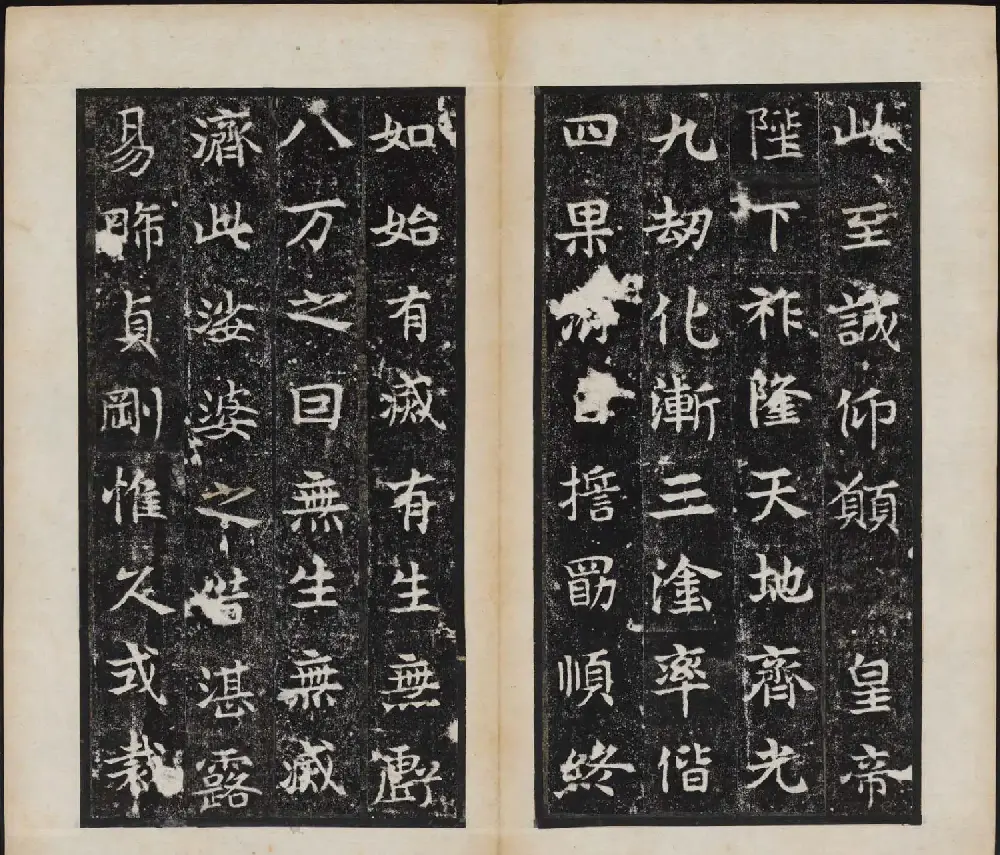 此至誠仰願 皇帝
陛下祚隆天地齊光
九劫化漸三塗率偕
四果擔勗順終
如始有滅有生無虧
八万之曰無生無滅
濟此娑婆之湛露
易晞貞剛惟久式裁